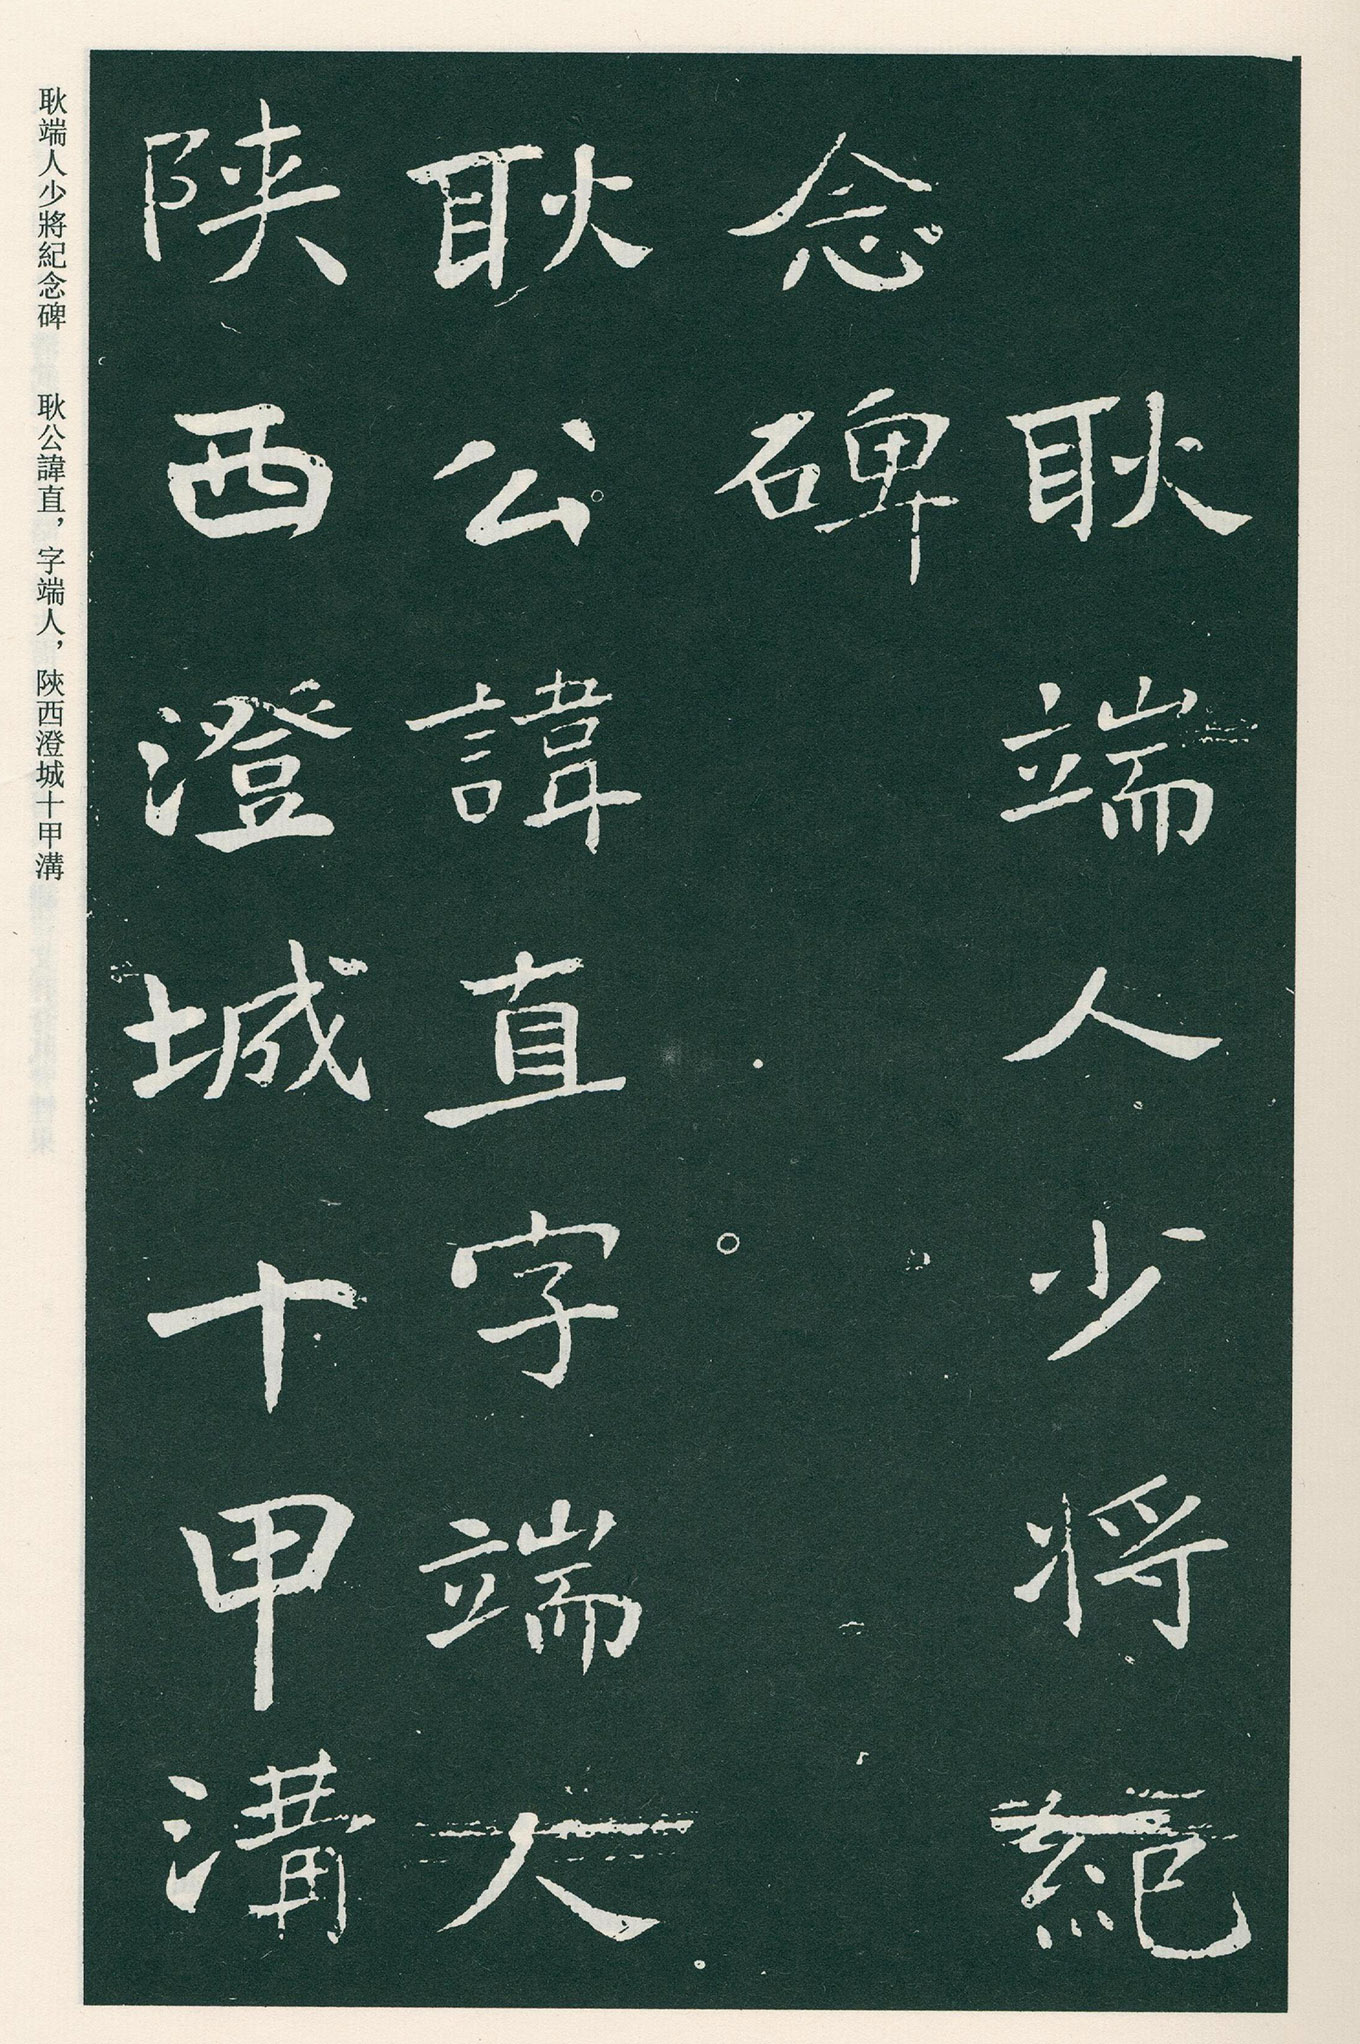 耿端人少将紀
念碑
耿公諱直字端人
陝西澄城十甲溝
耿端人少將紀念碑　耿公諱直，字端人，陝西澄城十甲溝